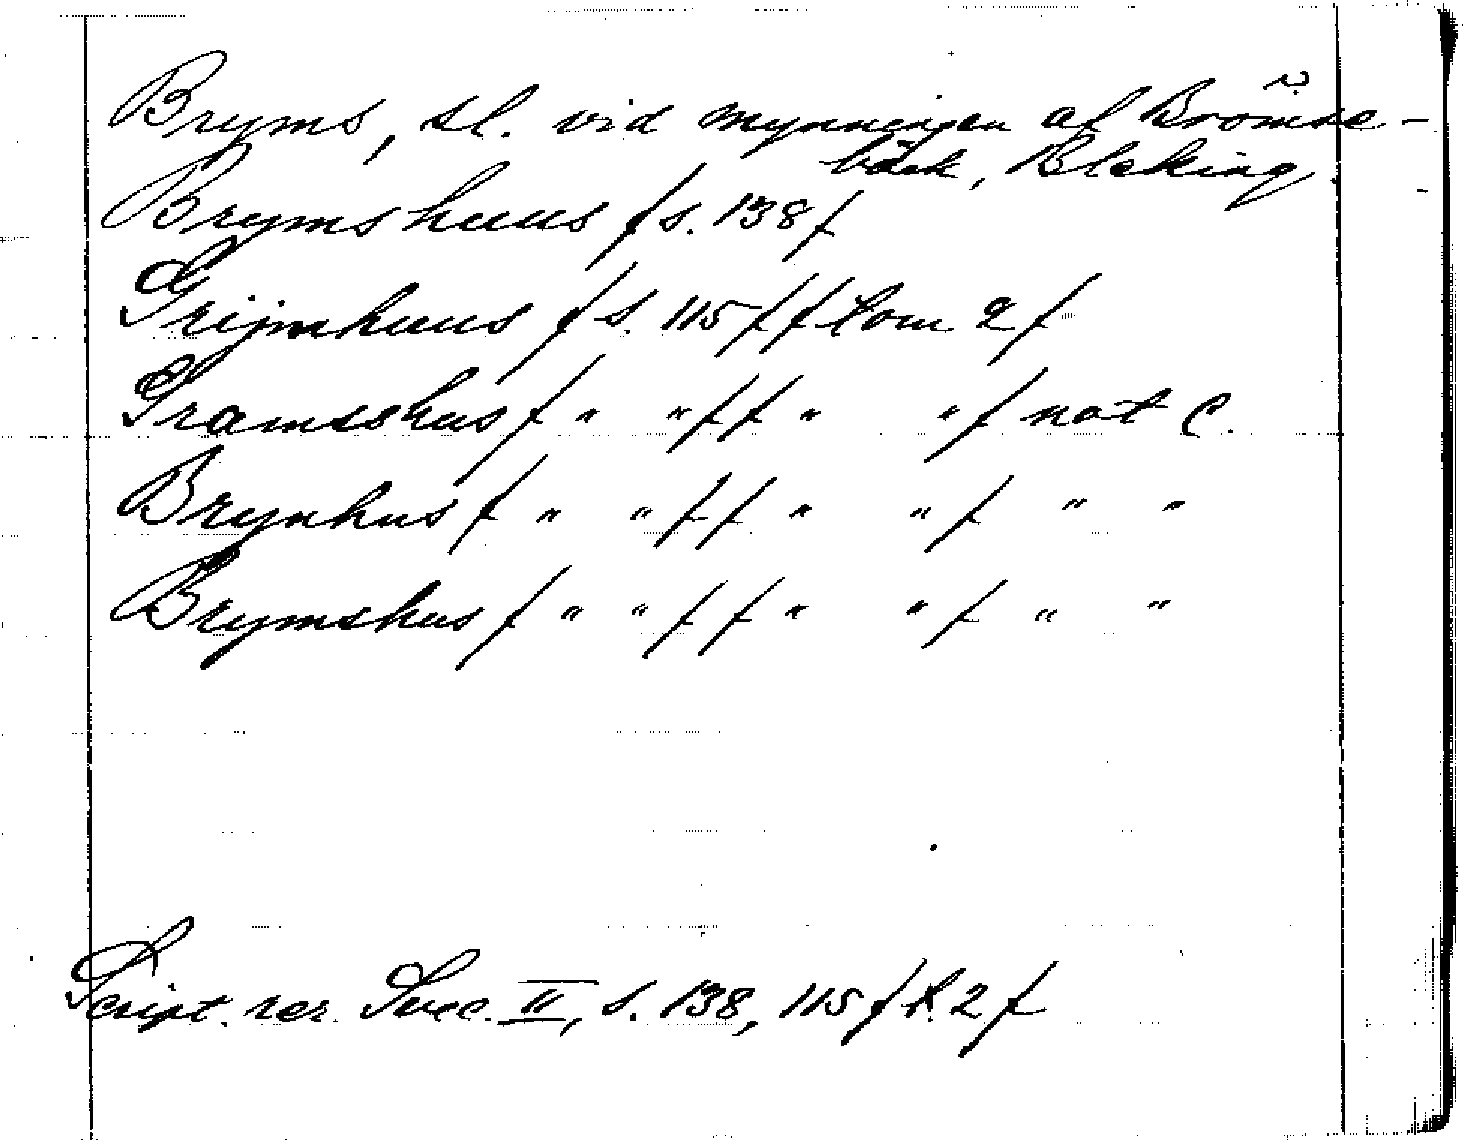 Bryms, sl. vid mynningen af Brömse-
bäck, Bleking.
Brymshuus / s. 138 /
Grijmhuus / s. 115 / / kom 2 /
Gramsshus / " " / / " " / not c.
Brynhus / " " / / " " / " "
Brymshus / " " / / " " / " "
Script. rer. Svec. II, s. 138, 115 / k. 2 /